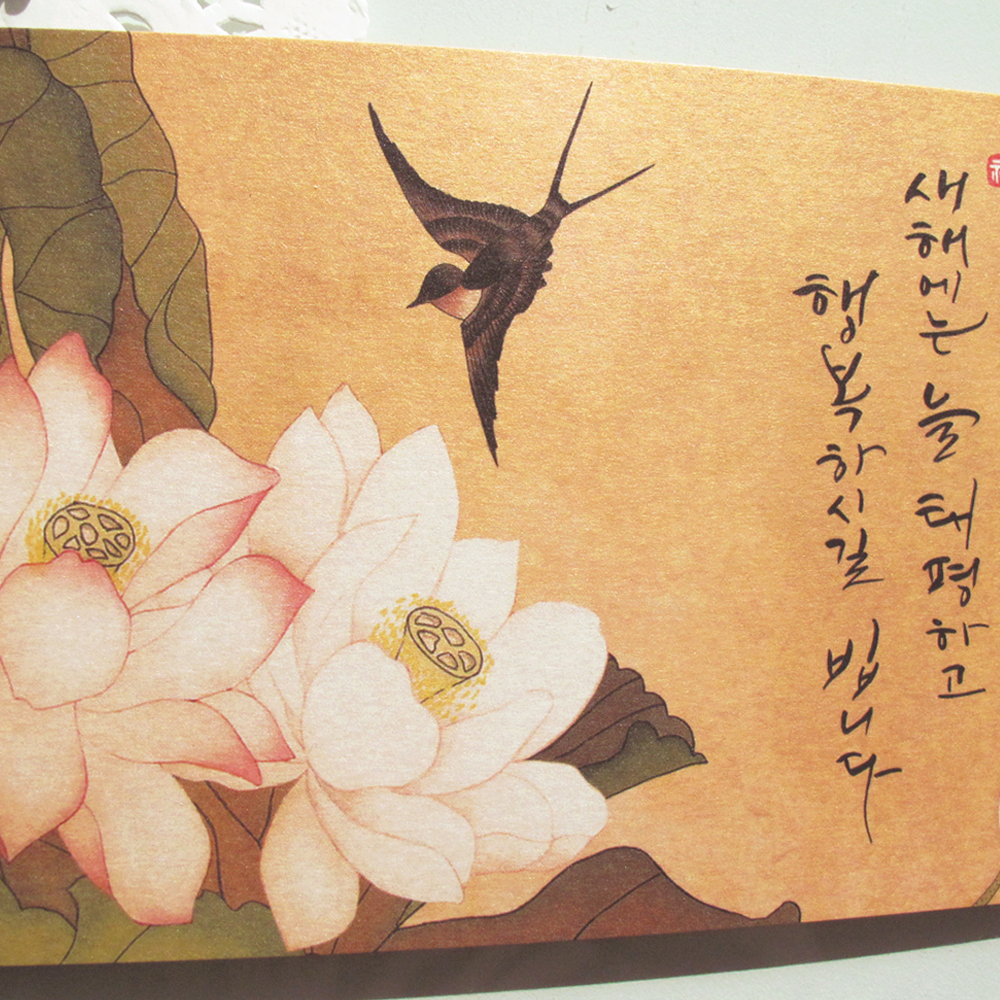 새해에는 늘 태평하고
행복하시길 빕니다